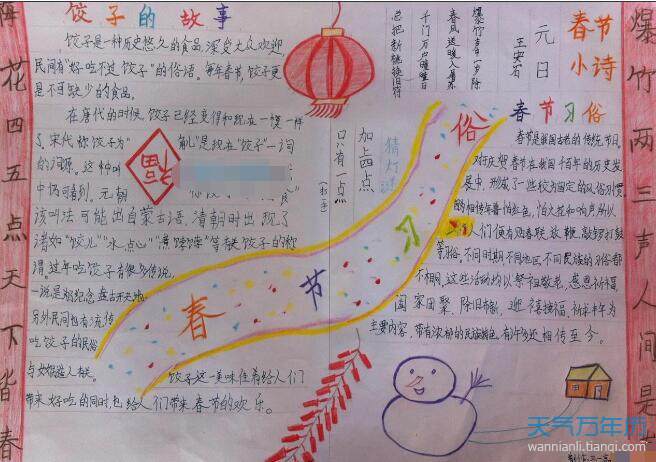 饺子的故事
饺子是一种历史悠久的食品,深受大众欢迎
民间有"好吃不过饺子"的俗语,每年春节饺子更
是不可缺少的食品。
在唐代的时候,饺子已经变得和现在一模一样
了,宋代称饺子为"
角儿"是现在"饺子"一词
的词源。这种叫
中仍可看到。元朝
该叫法可能出自蒙古语,清朝时出现了
诸如"饺儿""水点心""煮饽饽"等有关饺子的称
谓。过年吃饺子有很多传说,
一说是为纪念盘古开天地
另外民间也有流传
吃饺子的民俗
与女娲造人有关。
饺子这一美味佳肴给人们
带来好吃的同时,也给人们带来春节的欢乐。
福
春节习俗
猜灯谜
加上四点
只有一点
春节
小诗
元日
王安石
爆竹声中一岁除
春风送暖入屠苏
千门万户曈曈日
总把新桃换旧符
春节习俗
春节是我国古老的传统节日。
对于庆祝春节在我国千百年的历史发
展中,形成了一些较为固定的风俗习惯
相传年兽怕红色,怕火花和响声所以
人们便有贴春联,放鞭,敲锣打鼓
等习俗,不同时期不同地区不同民族的习俗都
不相同,这些活动均以祭祖敬老,感恩祈福
阖家团聚,除旧布新,迎禧接福,祈求丰年为
主要内容,带有浓郁的民族特色,有许多还相传至今。
爆竹两三声人间是
阵花四五点天下皆春
天气万年历
wannianli.tianqi.com